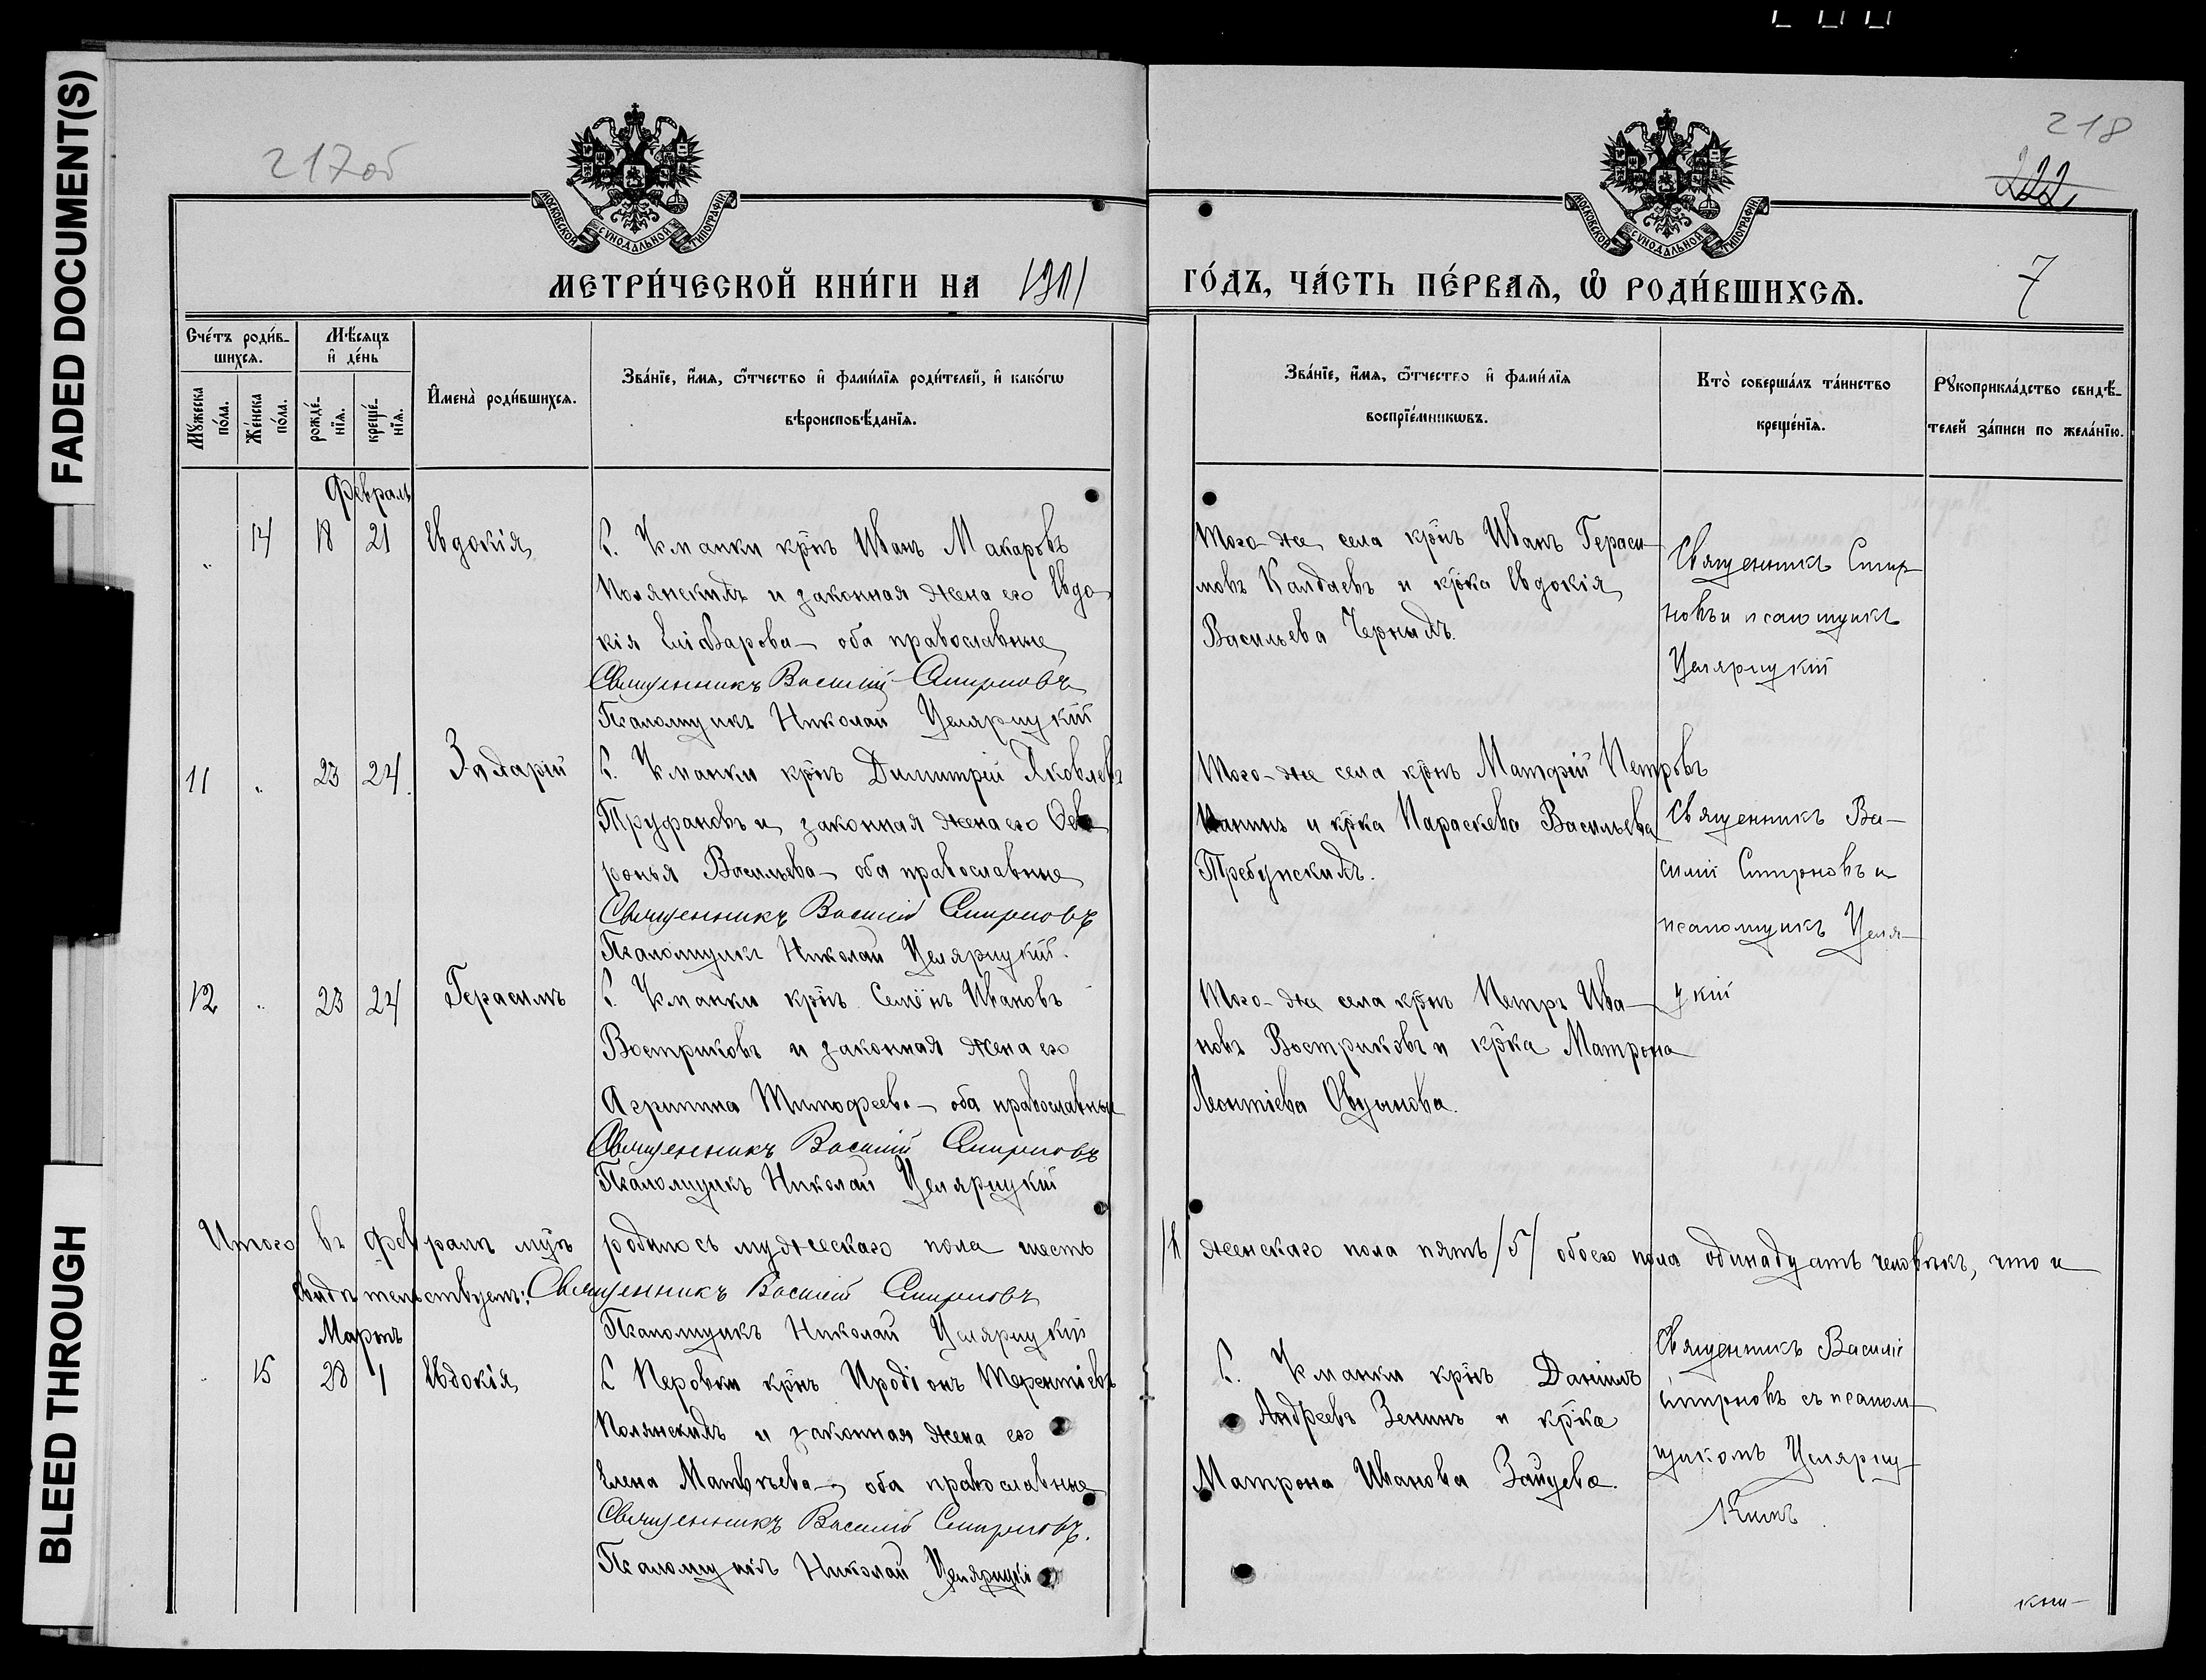 FADED DOCUMENT(S)
BLEED THROUGH
217 об
218
222
МОСКОВСКОЙ СѴНОДАЛЬНОЙ ТИПОГРАФІИ
МОСКОВСКОЙ СѴНОДАЛЬНОЙ ТИПОГРАФІИ
МЕТРИ́ЧЕСКОЙ КНИ́ГИ НА 1911
ГО́ДЪ, ЧА́СТЬ ПЕ́РВАѦ, Ѡ РОДИ́ВШИХСѦ.
7
Сче́тъ роди́в-
шихсѧ.
Мꙋжеска по́ла.
Же́нска по́ла.
Мѣ́сѧцъ
и҆ де́нь
рожде́-
нїѧ.
креще́-
нїѧ.
И҆мена̀ роди́вшихсѧ.
Зва́нїе, и҆́мѧ, ѻ҆́тчество и҆ фами́лїѧ роди́телей, и҆ како́гѡ
вѣроисповѣ́данїѧ.
Зва́нїе, и҆́мѧ, ѻ҆́тчество и҆ фами́лїѧ
воспрїе́мникѡвъ.
Кто̀ соверша́лъ та́инство
креще́нїѧ.
Рꙋкоприкла́дство свидѣ́-
телей за́писи по жела́нїю.
Февраль
" 14 18 21 Евдокія
С. Кманки крнъ Иванъ Макаровъ
Полянскихъ и законная жена его Евдо
кія Елизарова – оба православные
Священникъ Василій Смирновъ
Псаломщикъ Николай
Того-же села крнъ Иванъ Гераси
мовъ Калдаевъ и крка Евдокія
Васильева Черныхъ.
Священникъ Смир
новъ и псаломщикъ
11 " 23 24. Захарій
С. Кманки крнъ Димитрій Яковлевъ
Труфановъ и законная жена его Фев
ронья Васильева – оба православные
Священникъ Василій Смирновъ
Псаломщикъ Николай
Того-же села крнъ Матфій Петровъ
и крка Параскева Васильева
Требунскихъ.
Священникъ Ва-
силій Смирновъ и
псаломщикъ
цкій
12 " 23 24 Герасимъ
С. Кманки крнъ Семёнъ Ивановъ
Востриковъ и законная жена его
Агрипина Тимофеева – оба православные
Священникъ Василій Смирновъ
Псаломщикъ Николай
Того-же села крнъ Петръ Ива-
новъ Востриковъ и крка Матрона
Леонтіева
Итого въ февралѣ мцѣ родилось мужескаго пола шесть женскаго пола пять /5/ обоего пола одинадцать человѣкъ, что и
свидѣтельствуемъ: Священникъ Василій Смирновъ
Псаломщикъ Николай
Мартъ
" 15 28 1 Евдокія
С. Перовки крнъ Иродіонъ Терентіевъ
Полянскихъ и законная жена его
Елена Матвѣева – оба православные
Священникъ Василій Смирновъ.
Псаломщикъ Николай
С. Кманки крнъ Даніилъ
Андреевъ Зенинъ и крка
Матрона Ивановa Зайцева.
Священникъ Василій
Смирновъ съ псалом-
щикомъ
кимъ